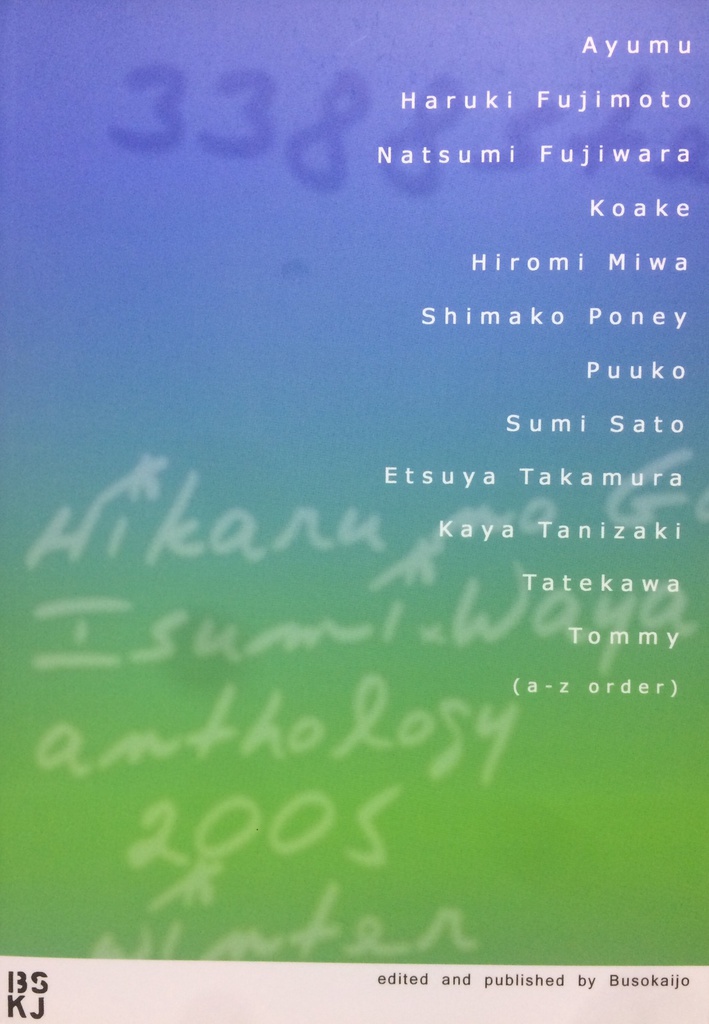 Ayumu
Haruki Fujimoto
Natsumi Fujiwara
Koake
Hiromi Miwa
Shimako Poney
Puuko
Sumi Sato
Etsuya Takamura
Kaya Tanizaki
Tatekawa
Tommy
(a-z order)
Hikaru no Go
Isumi x Waya
anthology
2005
winter
BS
KJ
edited and published by Busokaijo